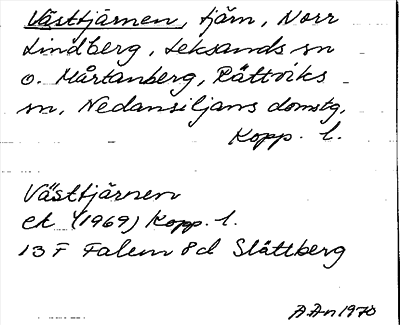 Västtjärnen, tjärn, Norr
Lindberg, Leksands sn
o. Mårtanberg, Rättviks
sn, Nedansiljans domstg,
Kopp. l.
Västtjärnen
ek (1969) Kopp. l.
13 F Falun 8d Slättberg
AAn 1970